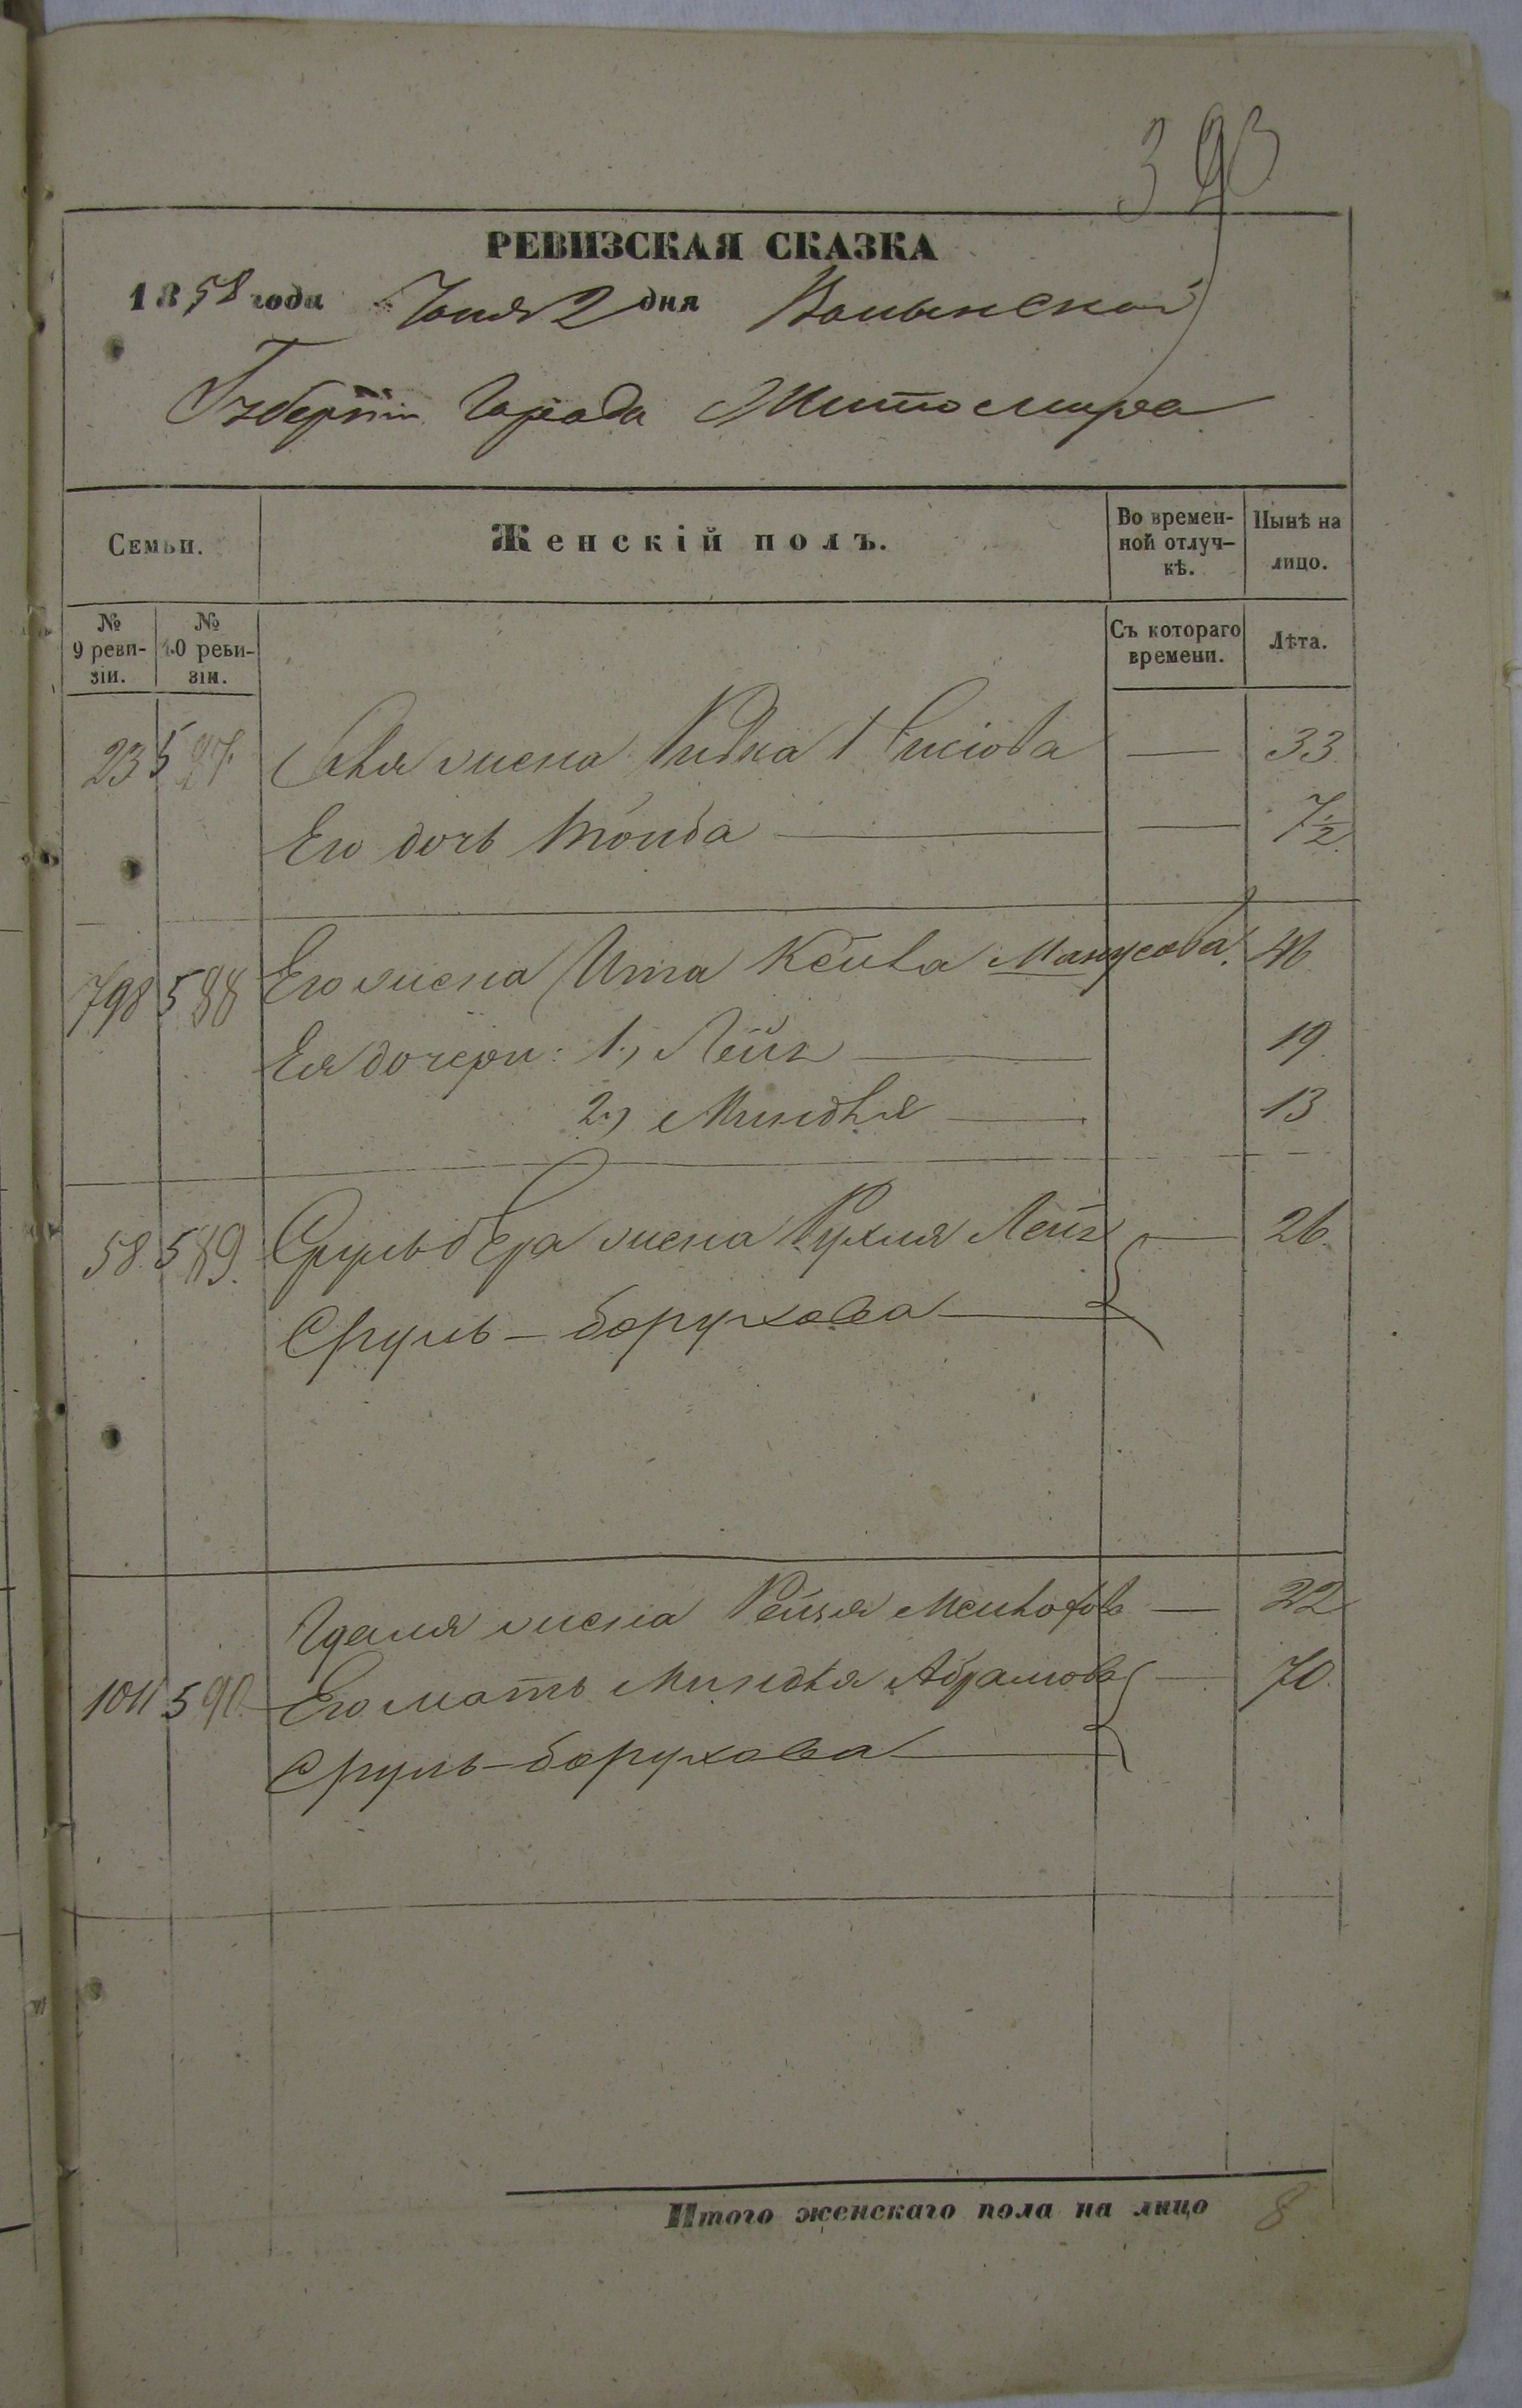 393
РЕВИЗСКАЯ СКАЗКА
1858 года Іюня 2 дня Волынской
Губерніи Города Житомира
Семьи.
Женскій полъ.
Во времен-
ной отлуч-
кѣ.
Нынѣ на
лицо.
№
9 реви-
зіи.
№
10 реви-
зіи.
Съ котораго
времени.
Лѣта.
23 587. жена Ривка — 33.
Его дочь — 7½
798 588 Его жена Ита Кейла Манусова. 46.
Ея дочери: 1., Лея — 19.
2., Миндля — 13
58. 589. Сруль бера жена Рухля Лея — 26.
Сруль-борухова
Гдаля жена Рейзя — 22
1011 590. Его мать Миндля Абрамова — 70.
Сруль-борухова
Итого женскаго пола на лицо 8